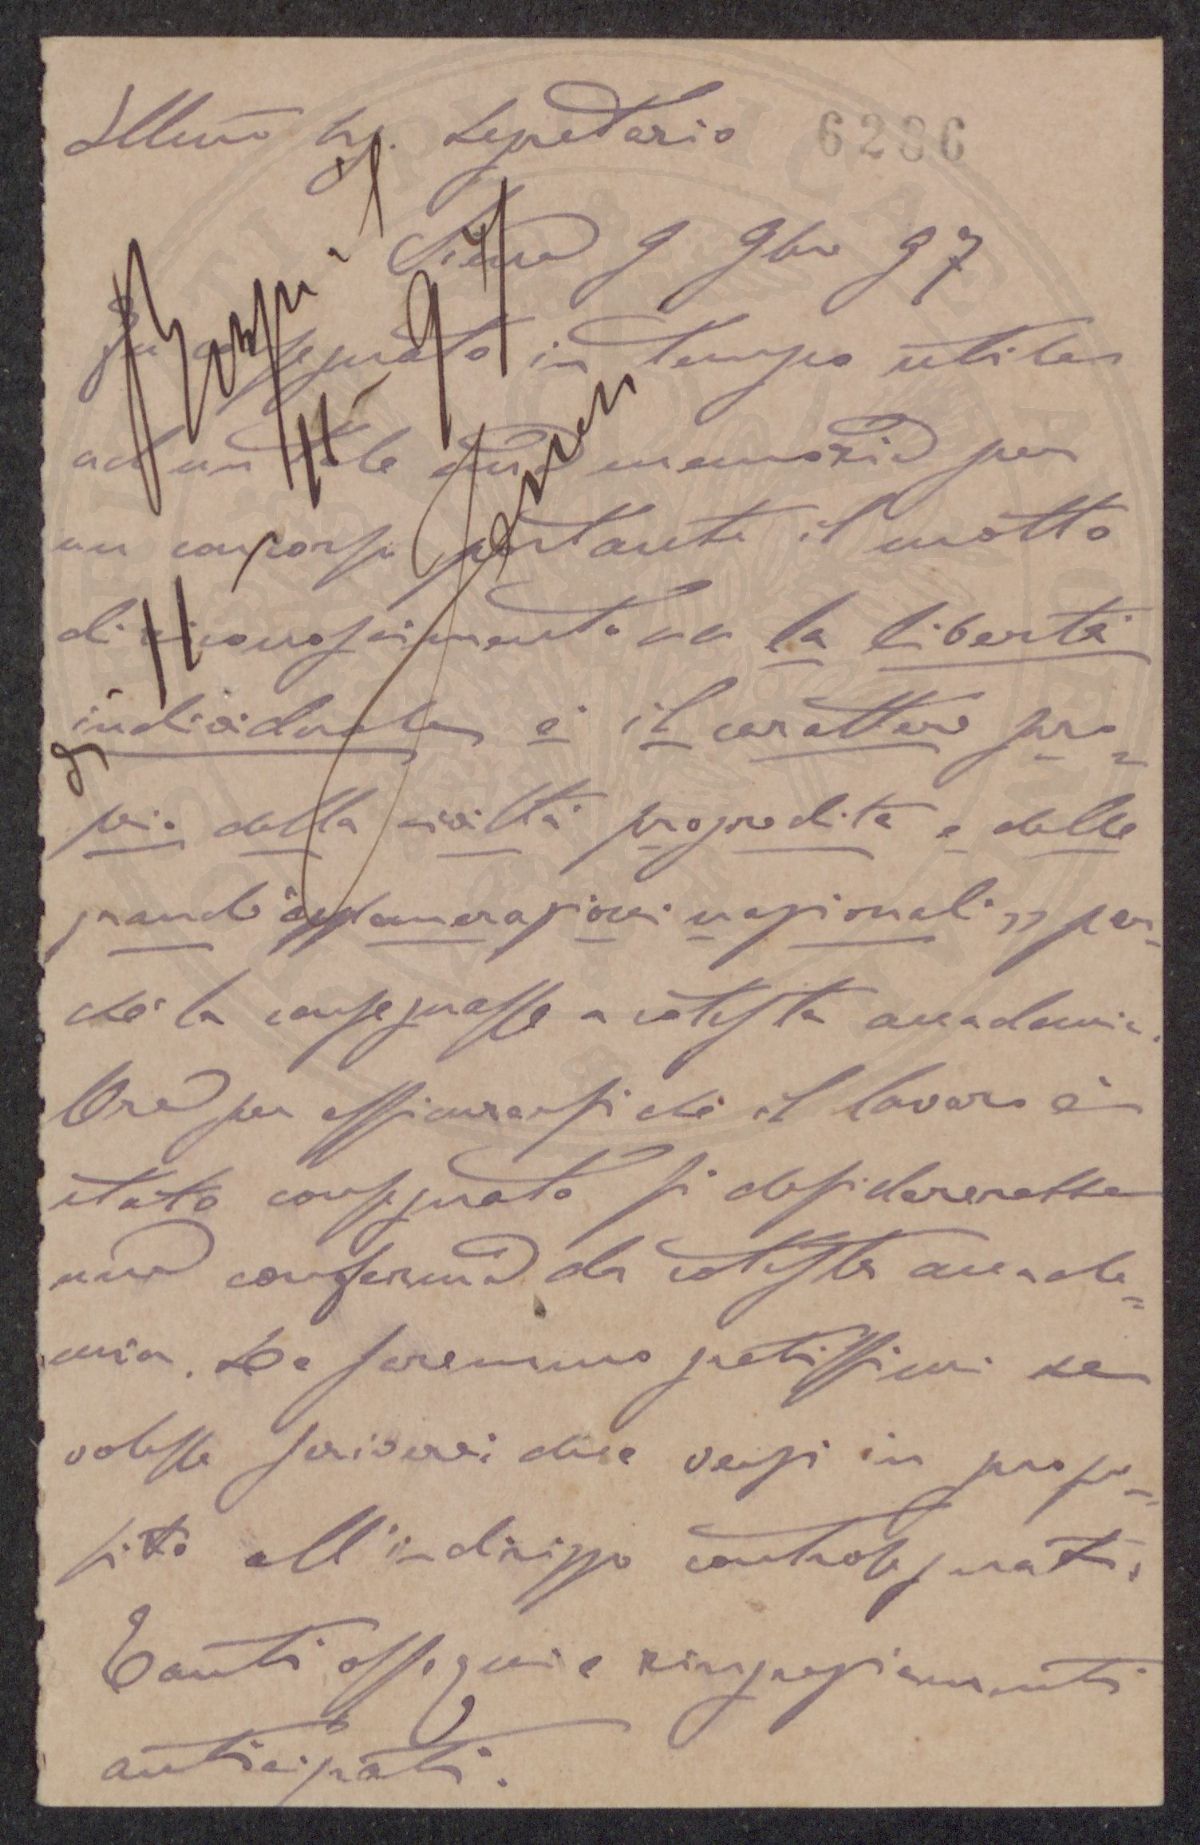 Illmo Sig. Segretario 6286
Siena 9 9bre 97
Fu consegnato in tempo utile
ad un tale una memoria per
un concorso portante il motto
di riconoscimento „ la libertà
individuale è il carattere pro=
prio della civiltà progredita e delle
grandi agglomerazioni nazionali „ per=
chè la consegnasse a cotesta accademia.
Ora per assicurarsi che il lavoro è
stato consegnato si desidererebbe
una conferma da cotesta accade=
mia. Le saremmo gratissimi se
volesse scriverci due versi in propo=
sito all'indirizzo controsegnato.
Tanti ossequi e ringraziamenti
anticipati.
11
11
97